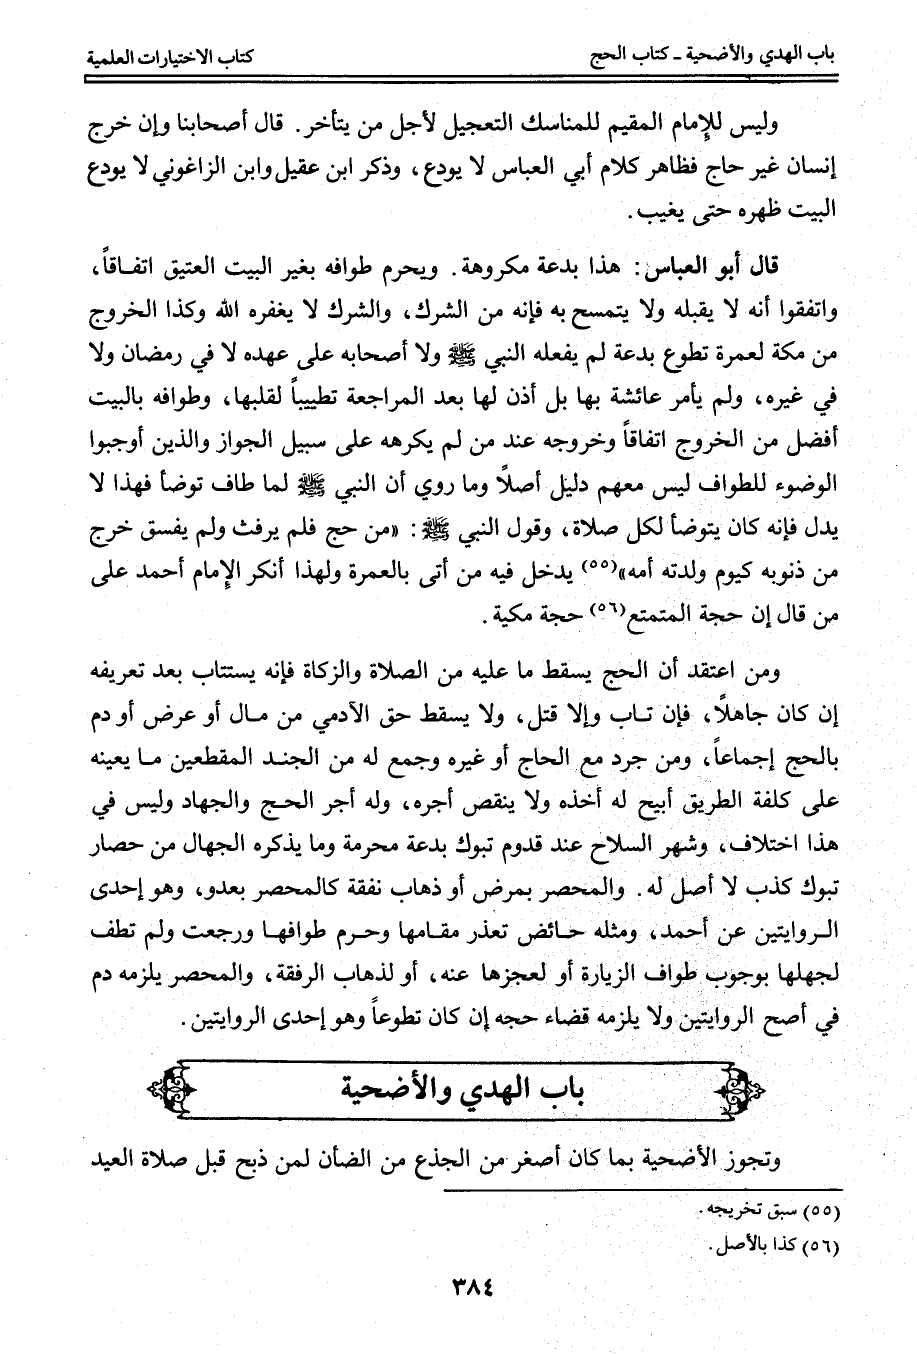 باب الهدي والأضحية ـ كتاب الحج
كتاب الاختيارات العلمية
وليس للإمام المقيم للمناسك التعجيل لأجل من يتأخر. قال أصحابنا وإن خرج
إنسان غير حاج فظاهر كلام أبي العباس لا يودع، وذكر ابن عقيل وابن الزاغوني لا يودع
البيت ظهره حتى يغيب.
قال أبو العباس: هذا بدعة مكروهة. ويحرم طوافه بغير البيت العتيق اتفـاقاً،
واتفقوا أنه لا يقبله ولا يتمسح به فإنه من الشرك، والشرك لا يغفره الله وكذا الخروج
من مكة لعمرة تطوع بدعة لم يفعله النبي ﷺ ولا أصحابه على عهده لا في رمضان ولا
في غيره، ولم يأمر عائشة بها بل أذن لها بعد المراجعة تطييباً لقلبها، وطوافه بالبيت
أفضل من الخروج اتفاقاً وخروجه عند من لم يكرهه على سبيل الجواز والذين أوجبوا
الوضوء للطواف ليس معهم دليل أصلاً وما روي أن النبي ﷺ لما طاف توضأ فهذا لا
يدل فإنه كان يتوضأ لكل صلاة، وقول النبي ﷺ: «من حج فلم يرفث ولم يفسق خرج
من ذنوبه كيوم ولدته أمه»(٥٥) يدخل فيه من أتى بالعمرة ولهذا أنكر الإمام أحمد على
من قال إن حجة المتمتع(٥٦) حجة مكية.
ومن اعتقد أن الحج يسقط ما عليه من الصلاة والزكاة فإنه يستتاب بعد تعريفه
إن كان جاهلاً، فإن تـاب وإلا قتل، ولا يسقط حق الآدمي من مـال أو عرض أو دم
بالحج إجماعاً، ومن جرد مع الحاج أو غيره وجمع له من الجنـد المقطعين مـا يعينه
على كلفة الطريق أبيح له أخذه ولا ينقص أجره، وله أجر الحـج والجهاد وليس في
هذا اختلاف، وشهر السلاح عند قدوم تبوك بدعة محرمة وما يذكره الجهال من حصار
تبوك كذب لا أصل له. والمحصر بمرض أو ذهاب نفقة كالمحصر بعدو، وهو إحدى
الـروايتين عن أحمد، ومثله حـائض تعذر مقـامها وحـرم طوافهـا ورجعت ولم تطف
لجهلها بوجوب طواف الزيارة أو لعجزها عنه، أو لذهاب الرفقة، والمحصر يلزمه دم
في أصح الروايتين ولا يلزمه قضاء حجه إن كان تطوعاً وهو إحدى الروايتين.
باب الهدي والأضحية
وتجوز الأضحية بما كان أصغر من الجذع من الضأن لمن ذبح قبل صلاة العيد
(٥٥) سبق تخريجه.
(٥٦) كذا بالأصل.
٣٨٤